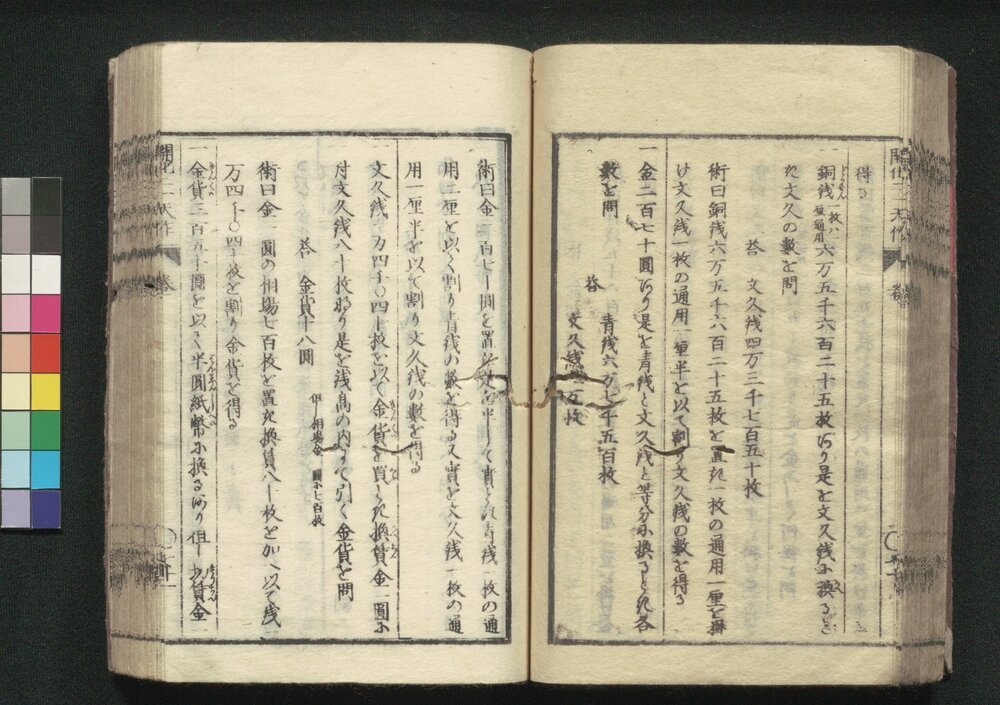 得る
一 銅銭一枚ハ一厘通用六万五千六百二十五枚有り是を文久銭に換るとき
た文久の数を問
答 文久銭四万三千七百五十枚
術曰銅銭六万五千六百二十五枚を置た一枚の通用一厘を掛
け文久銭一枚の通用一厘半を以て割り文久銭の数を得る
一 金二百七十圓有り是を青銭と文久銭と等分に換るとた各
数を問
答 青銭六万七千五百枚
文久銭 万枚
術曰金二百七十圓を置 半して實とし青銭一枚の通
用二厘を以て割り青銭の数を得る又實を文久銭一枚の通
用一厘半を以て割り文久銭の数を得る
一 文久銭一万四千〇四十枚を以て金貨を買とた換賃金一圓に
付文久銭八十枚那り是を銭高の内にて引く金貨を問
答 金貨十八圓 但し相場金一圓に七百枚
術曰金一圓の相場七百枚を置た換賃八十枚を加へ以て銭一
万四千〇四十枚を割り金貨を得る
一 金貨三百五十圓を以て半圓紙幣に換る有り但し歩賃金一
開化二一天作 巻
開化二一天作 巻